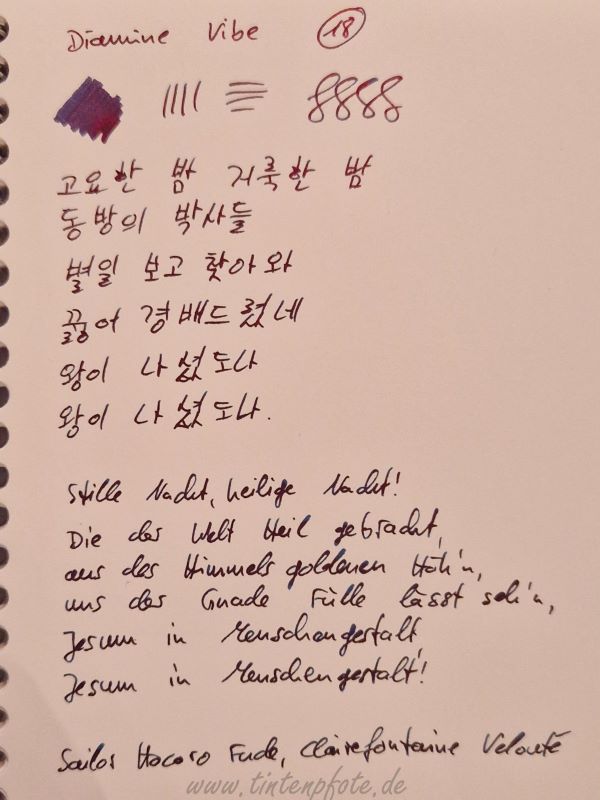 Diamine Vibe 18
8888
고요한 밤 거룩한 밤
동방의 박사들
별일 보고 찾아와
꿇어 경배드렸네
왕이 나셨도다
왕이 나셨도다.
Stille Nacht, heilige Nacht!
Die der Welt Heil gebracht,
aus des Himmels goldenen Höh'n,
uns der Gnade Fülle lässt seh'n,
Jesum in Menschengestalt,
Jesum in Menschengestalt!
Sailor Hocoro Fude, Clairefontaine Velouté
www.tintenpfote.de